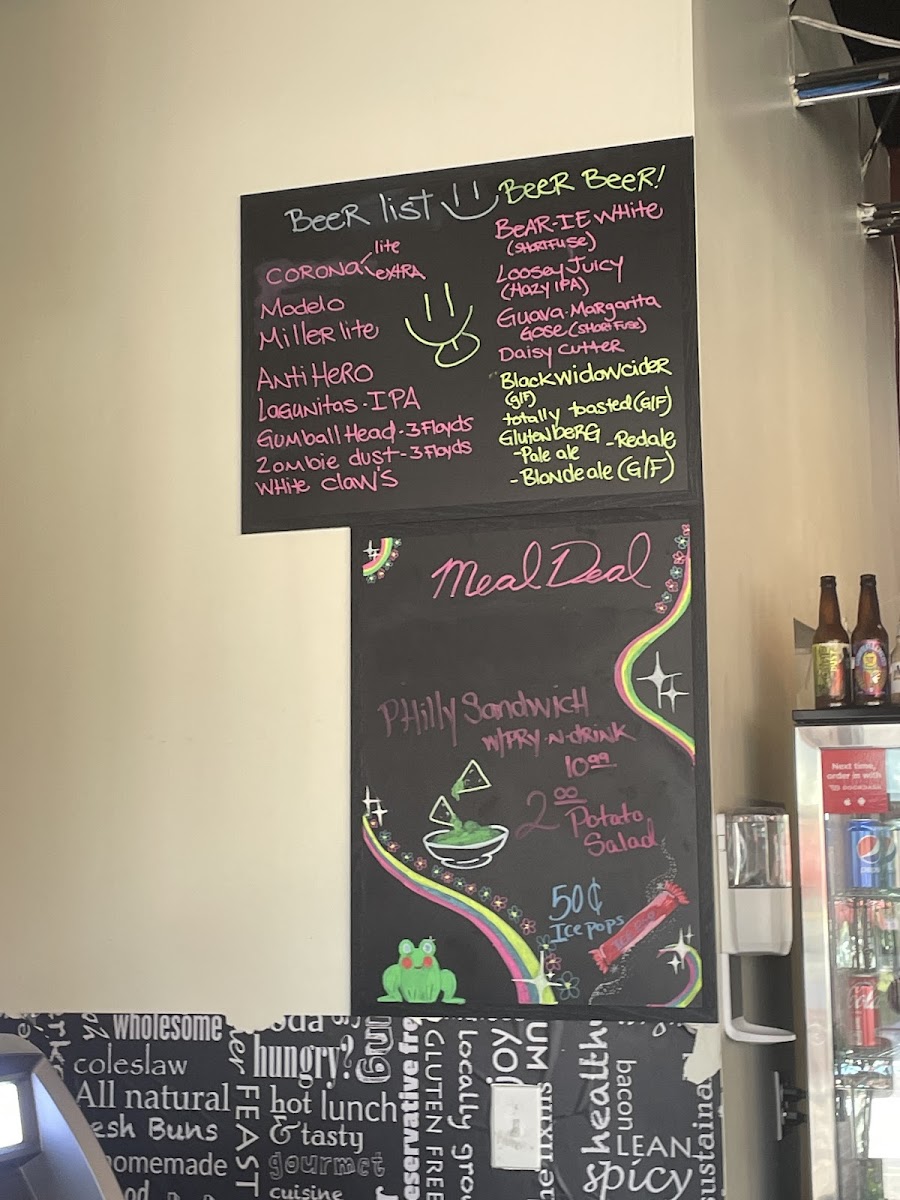 BeeR list
CORONA lite
extRA
Modelo
Miller lite
Anti HeRO
Lagunitas-IPA
Gumball Head-3Floyds
Zombie dust-3Floyds
White Claw's
BeeR BeeR!
BeAR-IE WHite
(SHORTFUSE)
Loosey Juicy
(Hazy IPA)
Guava-Margarita
Gose (SHORT FUSE)
Daisy Cutter
Black widow cider
(g/F)
totally toasted (G/F)
GlutenbeRG -Redale
-Pale ale
-Blonde ale (G/F)
Meal Deal
PHilly Sandwich
W/FRY-N-DRINK
10.99
2.00 Potato
Salad
50¢
Ice pops
Next time,
order in with
DOORDASH
pepsi
wholesome
coleslaw
All natural
esh Buns
omemade
FEAST
hungry?
hot lunch
& tasty
gourmet
cuisine
eservative fre
GLUTEN FREE
locally gro
bacon
LEAN
spicy
sustaina